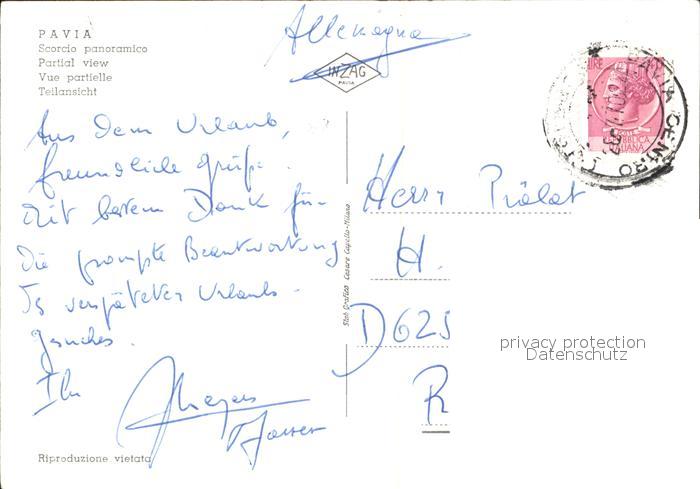 PAVIA
Scorcio panoramico
Partial view
Vue partielle
Teilansicht
Allemagna
INZAG
PAVIA
LIRE
REPUBBLICA
ITALIANA
PAVIA CENTRO
Aus dem Urlaub,
freundliche Grüße
Mit bestem Dank für
die prompte Beantwortung
Is verspäteten Urlaubs-
gesuches.
Ihr
Pfarrer
Herr Prälat
H.
D 625
R
Stab. Grafico Cesare Capello - Milano
privacy protection
Datenschutz
Riproduzione vietata